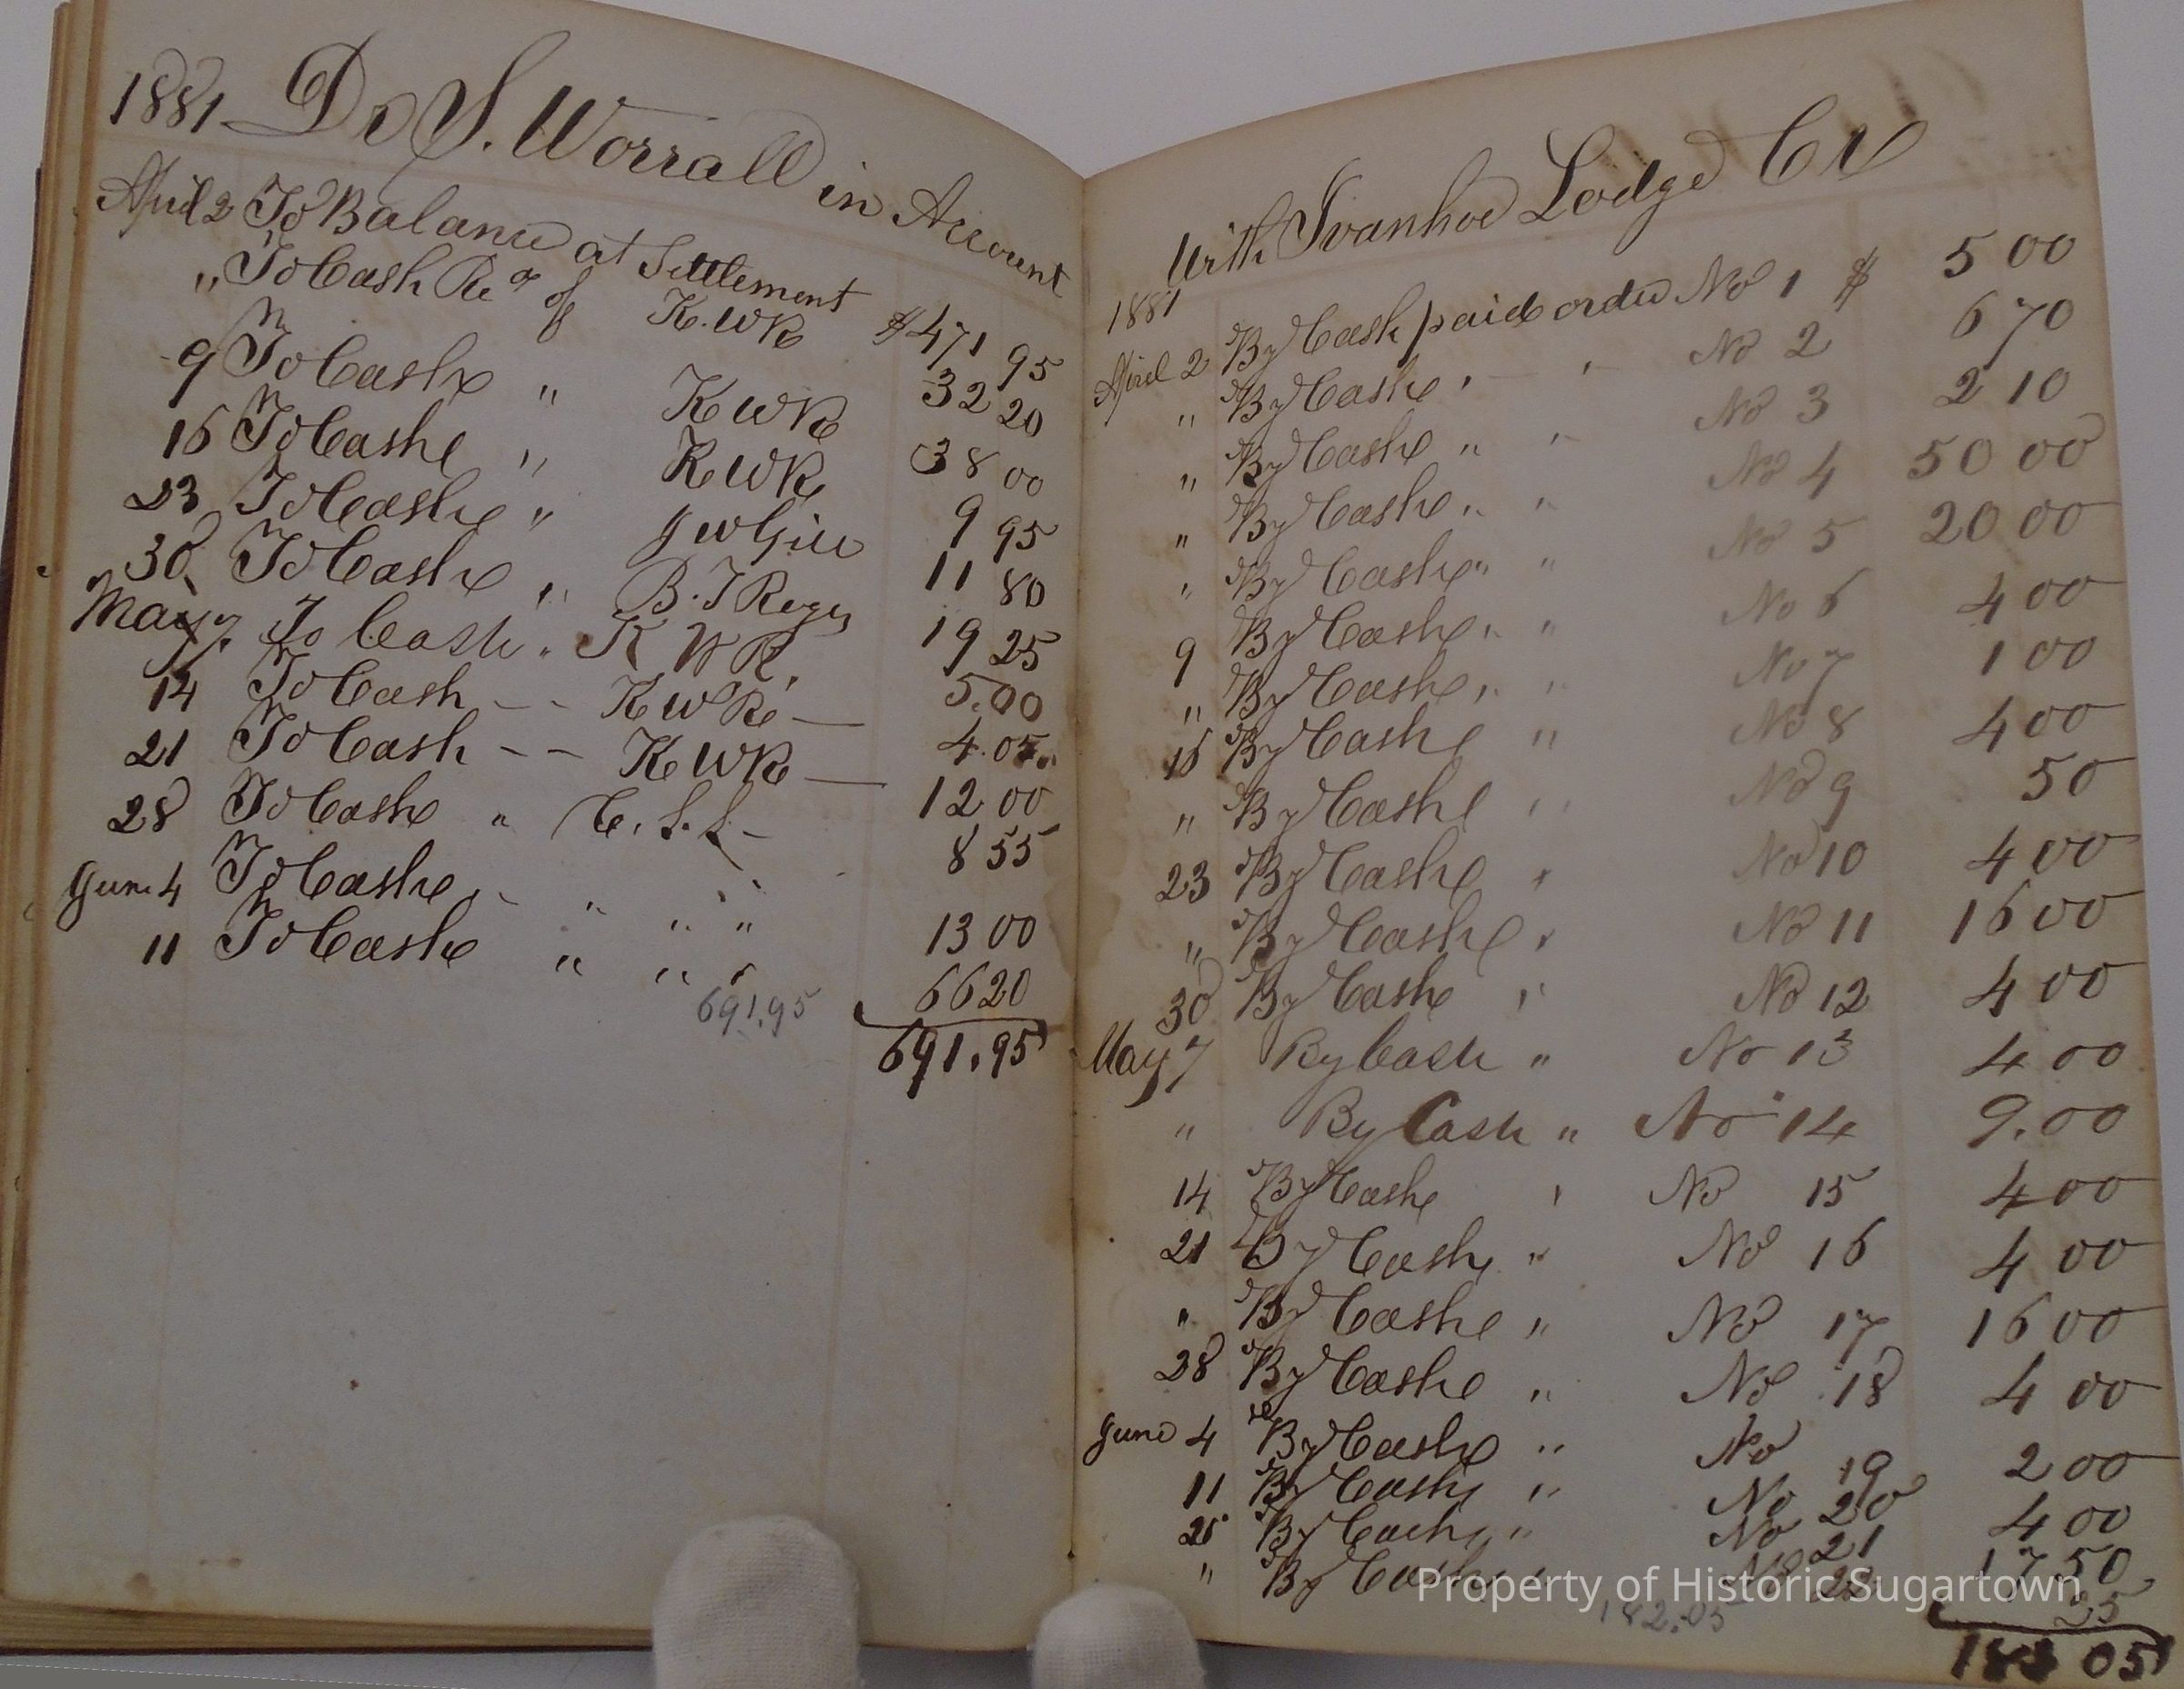 1881 Dr S. Worrall in Account
April 2 To Balance at Settlement $471 95
" To Cash Rec of K.WK 32 20
9 To Cash " KWK 38 00
16 To Cash " KWK 9 95
23 To Cash " J W Gill 11 80
30 To Cash " B.T 19 25
May 7 To Cash " K W K. 5.00
14 To Cash - - K W K — 4.05
21 To Cash - - K WK — 12 00
28 To Cash " C.S.L - 8 55
June 4 To Cash " " " 13 00
11 To Cash " " " 66 20
691.95
691.95
With Ivanhoe Lodge Cr
1881
April 2 By Cash paid order No 1 $ 5 00
" By Cash " " No 2 6 70
" By Cash " " No 3 2 10
" By Cash " " No 4 50 00
" By Cash " " No 5 20 00
9 By Cash " " No 6 4 00
" By Cash " " No 7 1 00
16 By Cash " No 8 4 00
" By Cash " No 9 50
23 By Cash " No 10 4 00
" By Cash " No 11 16 00
30 By Cash " No 12 4 00
May 7 By Cash " No 13 4 00
" By Cash " No 14 9.00
14 By Cash " No 15 4 00
21 By Cash " No 16 4 00
" By Cash " No 17 16 00
28 By Cash " No 18 4 00
June 4 By Cash " No 19 2 00
11 By Cash " No 20 4 00
25 By Cash " No 21 17 50
" By Cash " No 22 25
182.05
05
Property of Historic Sugartown